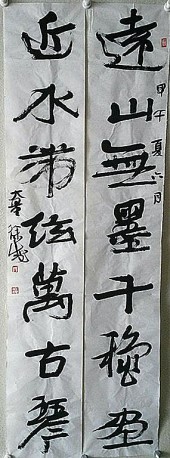 遠山無墨千穐畫
甲午夏六月
近水無絃萬古琴